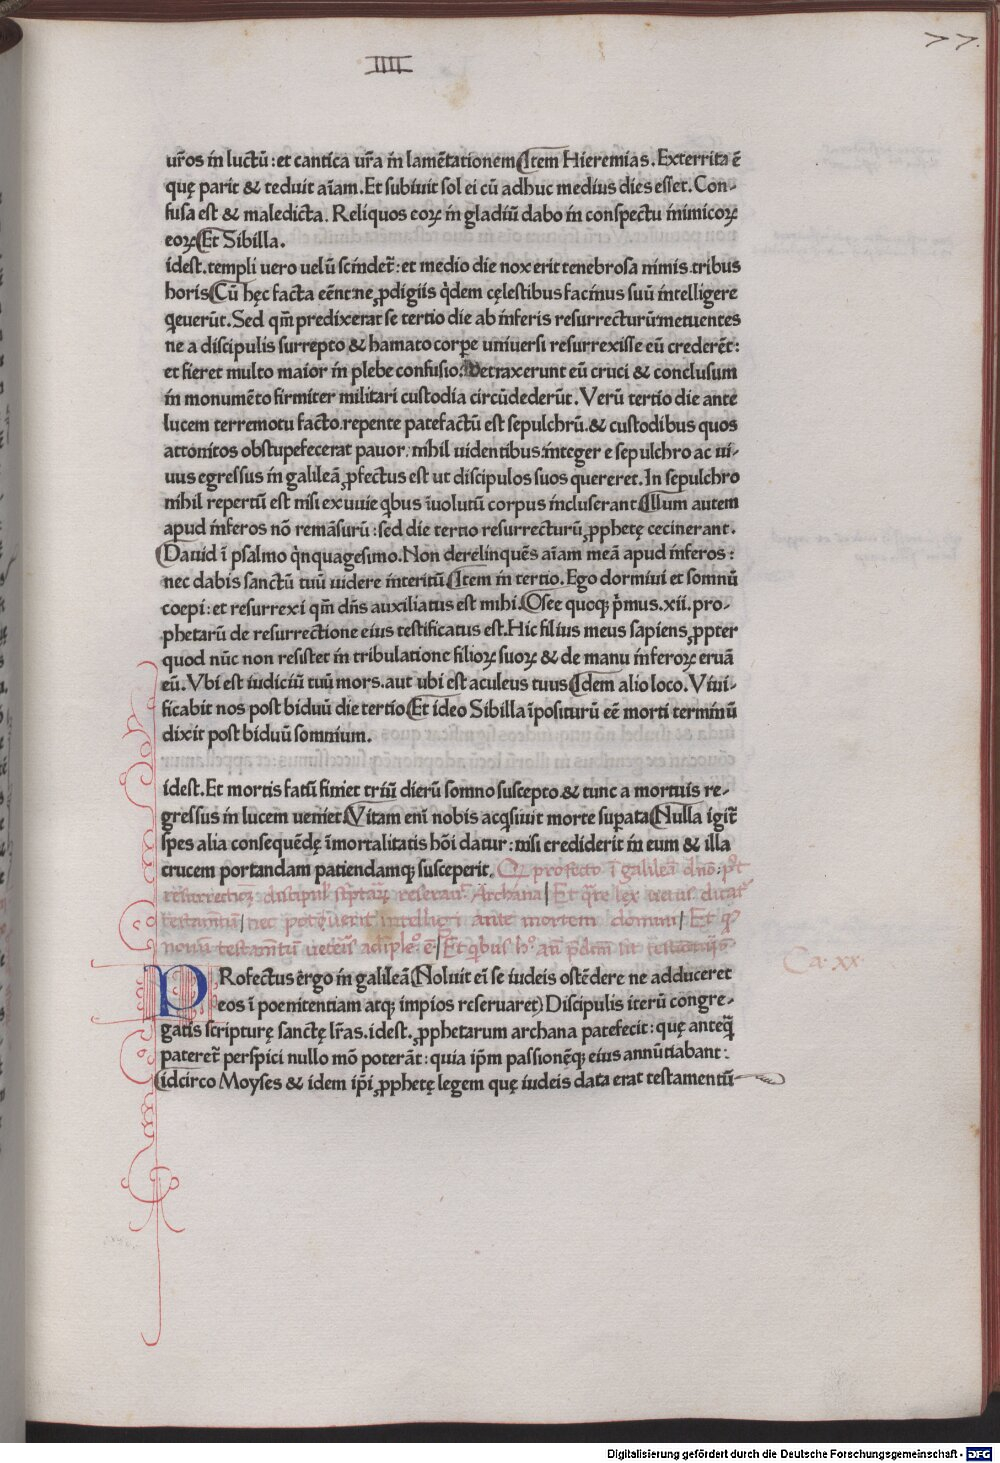 IIII
77.
ur̃os in luctũ: et cantica ur̃a in lamẽtationem Item Hieremias. Exterrita ẽ
quę parit & teduit aĩam. Et subiuit sol ei cũ adhuc medius dies esset. Con-
fusa est & maledicta. Reliquos eoꝝ in gladiũ dabo in conspectu inimicoꝝ
eoꝝ Et Sibilla.
idest. templi uero uelũ scindet̃: et medio die nox erit tenebrosa nimis tribus
horis Cũ hęc facta eẽnt ne ꝓdigiis q̇dem cęlestibus facinus suũ intelligere
q̇euerũt. Sed qm̃ predixerat se tertio die ab inferis resurrecturũ: metuentes
ne a discipulis surrepto & hamato corꝑe uniuersi resurrexisse eũ crederẽt:
et fieret multo maior in plebe confusio: Detraxerunt eũ cruci & conclusum
in monumẽto firmiter militari custodia circũdederũt. Verũ tertio die ante
lucem terremotu facto. repente patefactũ est sepulchrũ. & custodibus quos
attonitos obstupefecerat pauor. nihil uidentibus. integer e sepulchro ac ui-
uus egressus in galileã ꝓfectus est ut discipulos suos quereret. In sepulchro
nihil repertũ est nisi exuuie q̇bus ĩuolutũ corpus incluserant Illum autem
apud inferos nõ remãsurũ: sed die tertio resurrecturũ ꝓphetę cecinerant.
Dauid ĩ psalmo q̇nquagesimo. Non derelinquẽs aĩam meã apud inferos:
nec dabis sanctũ tuũ uidere interitũ Item in tertio. Ego dormiui et somnũ
coepi: et resurrexi qm̃ dñs auxiliatus est mihi. Osee quoq; p̍mus. xii. pro-
phetarũ de resurrectione eius testificatus est. Hic filius meus sapiens ꝓpter
quod nũc non resistet in tribulatione filioꝝ suoꝝ & de manu inferoꝝ eruã
eũ. Vbi est iudiciũ tuũ mors. aut ubi est aculeus tuus Idem alio loco. Viui-
ficabit nos post biduũ die tertio Et ideo Sibilla ĩposituru eẽ morti terminũ
dixit post biduũ somnium.
idest. Et mortis fatũ finiet triũ dierũ somno suscepto & tunc a mortuis re-
gressus in lucem ueniet. Vitam eni nobis acq̇siuit morte suꝑata Nulla igit̃
spes alia consequẽdę ĩmortalitatis hõi datur: nisi crediderit in eum & illa
crucem portandam patiendamq; susceperit. profecto ĩ galileã dño: pꝰt
resurrectionẽ: discipul' Archana / Et q̃re lex uetus dicat̃
testamtũm / nec poterit intelligi ante mortem domini / Et
nouũ testamtũm
Ca. xx.
PRofectus ergo in galileã (Noluit ei se iudeis ostẽdere ne adduceret
eos ĩ poenitentiam atq; impios reseruaret) Discipulis iterũ congre-
gatis scripturę sanctę lr̃as. idest. ꝓphetarum archana patefecit: quę anteq̃
pateret̃ perspici nullo mõ poterãt: quia ip̃m passionẽq; eius annũtiabant:
idcirco Moyses & idem ip̃i ꝓphetę legem quę iudeis data erat testamentũ
Digitalisierung gefördert durch die Deutsche Forschungsgemeinschaft - DFG